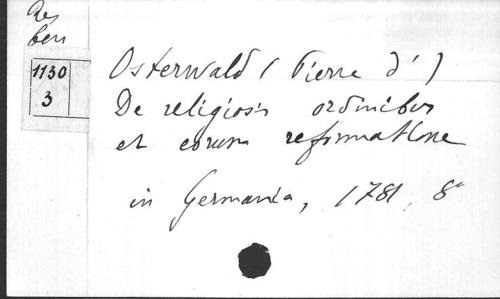 Res
ben
1130
3
Osterwald (Pierre d')
De religiosis ordinibus
et eorum reformatione
in Germania, 1781, 8°